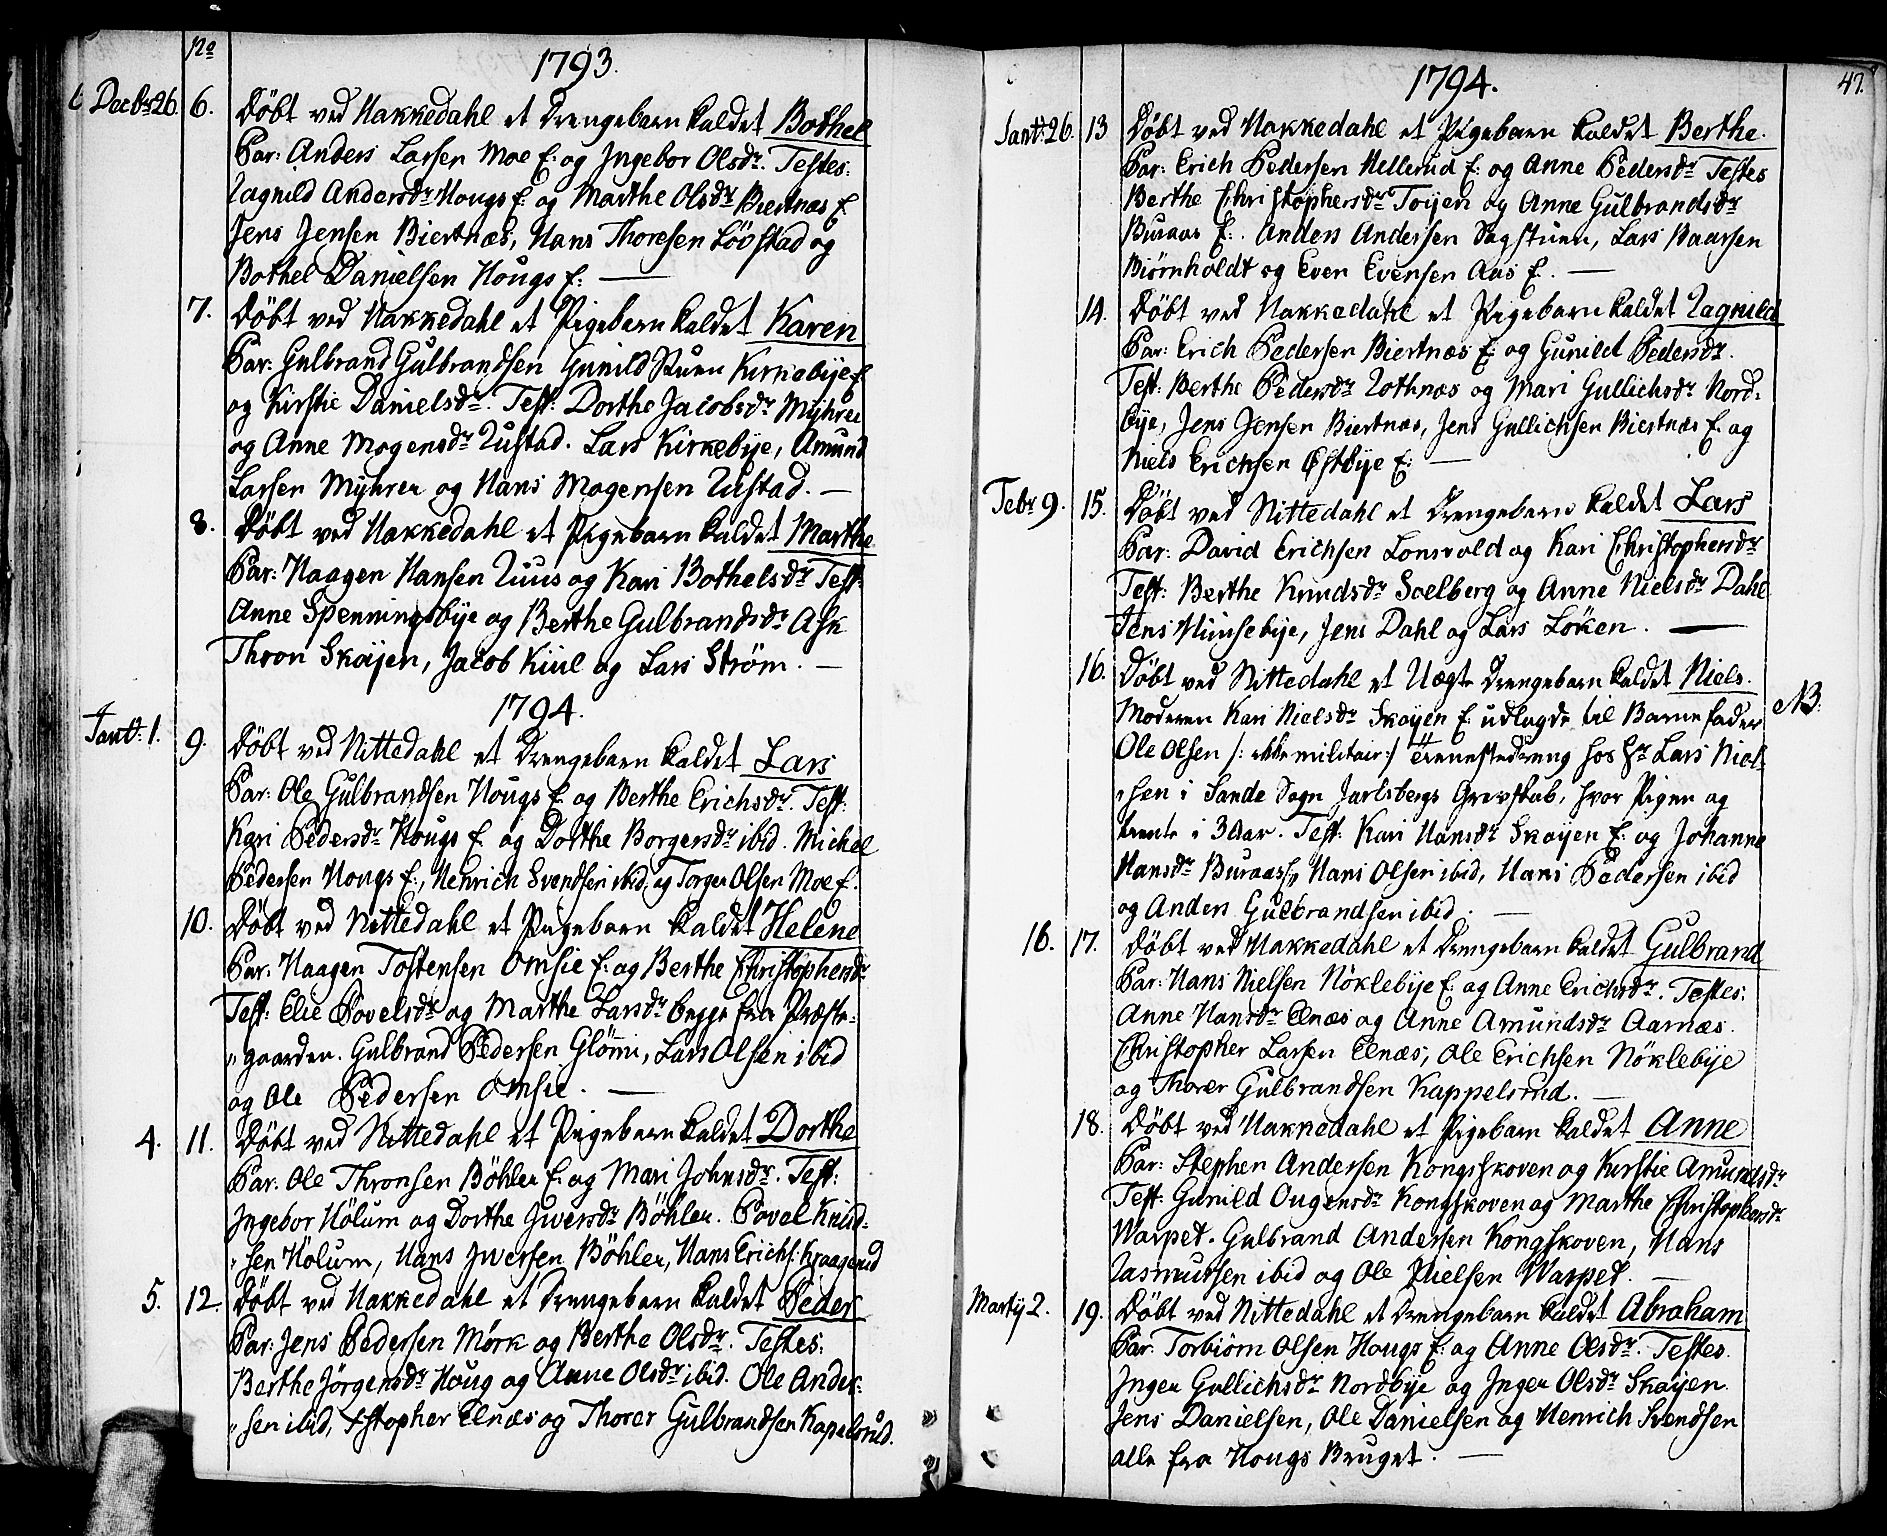 No
1793.
Decbr 26. 6. Döbt ved Hakkedahl et Drengebarn kaldet Bothel
Par: Anders Larsen Moe E: og Jngebor Olsdr. Testes:
Ragnild Andersdr Hougs E: og Marthe Olsdr Biertnæs E
Jens Jensen Biertnæs, Hans Thoresen Lövstad og
Bothel Danielsen Hougs E: —
7. Döbt ved Hakkedahl et Pigebarn kaldet Karen
Par: Gulbrand Gulbrandsen Gunild Stuen Kirkebÿe E
og Kirstie Danielsdr. Test: Dorthe Jacobsdr Mÿhrer
og Anne Mogensdr Rustad. Lars Kirkebÿe, Amund
Larsen Mÿhrer og Hans Mogensen Rustad. —
8. Döbt ved Hakkedahl et Pigebarn kaldet Marthe
Par: Haagen Hansen Ruus og Kari Bothelsdr Test:
Anne Spenningsbÿe og Berthe Gulbrandsdr Ask
Thron Skøÿen, Jacob Kiul og Lars Strøm. —
1794.
Jant: 1. 9. Döbt ved Nittedahl et Drengebarn kaldet Lars
Par: Ole Gulbrandsen Hougs E: og Berthe Erichsdr. Test:
Kari Pedersdr Hougs E. og Dorthe Borgersdr ibid. Michel
Pedersen Hougs E:, Henrich Svendsen ibid. og Torger Olsen Moe E.
10. Döbt ved Nittedahl et Pigebarn kaldet Helene
Par: Haagen Tostensen Omsie E: og Berthe Christophersdr
Test: Elie Povelsdr og Marthe Larsdr begge fra Præste-
gaarden. Gulbrand Pedersen Glömi, Lars Olsen ibid
og Ole Pedersen Omsie. —
4. 11. Döbt ved Nittedahl et Pigebarn kaldet Dorthe
Par: Ole Thronsen Böhler E: og Mari Johnsdr. Test:
Jngebor Hölum og Dorthe Jwersdr Böhler. Povel Knud-
sen Hölum, Hans Jwersen Böhler, Hans Erichs: Kraagerud
5. 12. Döbt ved Hakkedahl et Drengebarn kaldet Peder
Par: Jens Pedersen Mörk og Berthe Olsdr. Testes:
Berthe Jörgensdr Houg og Anne Olsdr ibid. Ole Ander-
sen ibid, Xstopher Elnæs og Thorer Gulbrandsen Kapelsrud.
47.
1794.
Jant: 26. 13 Döbt ved Hakkedahl et Pigebarn kaldet Berthe.
Par: Erich Pedersen Hellerud E: og Anne Pedersdr Testes
Berthe Christophersdr Toÿen og Anne Gulbrandsdr
Buraas E:. Anders Andersen Sagstuen, Lars Baarsen
Biørnholdt og Even Evensen Aas E. —
14. Döbt ved Hakkedahl et Pigebarn kaldet Ragnild
Par: Erich Pedersen Biertnæs E: og Gunild Pedersdr.
Test: Berthe Pedersdr Rothnæs og Mari Gullichsdr Nord-
bÿe, Jens Jensen Biertnæs, Jens Gullichsen Biertnæs E. og
Niels Erichsen Østbÿe E: —
Febr 9. 15. Döbt ved Nittedahl et Drengebarn kaldet Lars
Par: David Erichsen Lonsvold og Kari Christophersdr
Test: Berthe Knudsdr Soelberg og Anne Nielsdr Dahl
Jens Hunsebÿe, Jens Dahl og Lars Löken. —
16. Döbt ved Nittedahl et Uægte Drengebarn kaldet Niels. NB.
Moderen Kari Nielsdr Skøÿen E: udlagde til Barnefader
Ole Olsen /: ikke militair:/ Tienestedreng hos Hr Lars Niel-
sen i Sande Sogn Jarlsbergs Grevskab, hvor Pigen og
tiente i 3 Aar. Test: Kari Hansdr Skøÿen E: og Johanne
Hansdr Buraas E, Hans Olsen ibid, Hans Pedersen ibid
og Anders Gulbrandsen ibid. —
16. 17. Döbt ved Hakkedahl et Drengebarn kaldet Gulbrand
Par: Hans Nielsen Nöklebÿe E: og Anne Erichsdr. Testes:
Anne Hansdr Elnæs og Anne Amundsdr Aarnæs.
Christopher Larsen Elnæs, Ole Erichsen Nöklebÿe
og Thorer Gulbrandsen Kappelsrud. —
18. Döbt ved Hakkedahl et Pigebarn kaldet Anne
Par: Stephen Andersen Kongsskoven og Kirstie Amundsdr
Test: Gunild Ougensdr Kongsskoven og Marthe Christophersdr
Warpet. Gulbrand Andersen Kongsskoven, Hans
Rasmussen ibid og Ole Nielsen Warpet. —
Martÿ 2. 19. Döbt ved Nittedahl et Drengebarn kaldet Abraham
Par: Torbiörn Olsen Hougs E: og Anne Olsdr. Testes.
Jnger Gullichsdr Nordbÿe og Jnger Olsdr Skøÿen.
Jens Danielsen, Ole Danielsen og Henrich Svendsen
alle fra Hougs Bruget. —